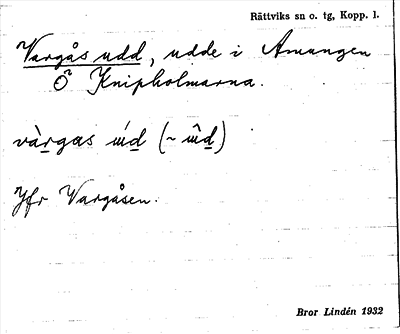 Rättviks sn o. tg, Kopp. l.
Vargås udd, udde i Amungen
Ö Knipholmarna.
và̱rgas ɯ́d (~ ɯ̂d)
Jfr Vargåsen.
Bror Lindén 1932